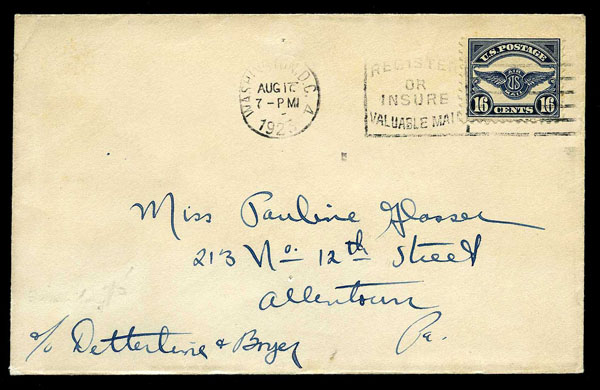 WASHINGTON, D.C. 4
AUG 17
7-PM
1923
REGISTER
OR
INSURE
VALUABLE MAIL
U.S. POSTAGE
AIR
US
MAIL
16 CENTS 16
Miss Pauline Glosser
213 No. 12th Street
Allentown
Pa.
c/o Detterline & Boyer